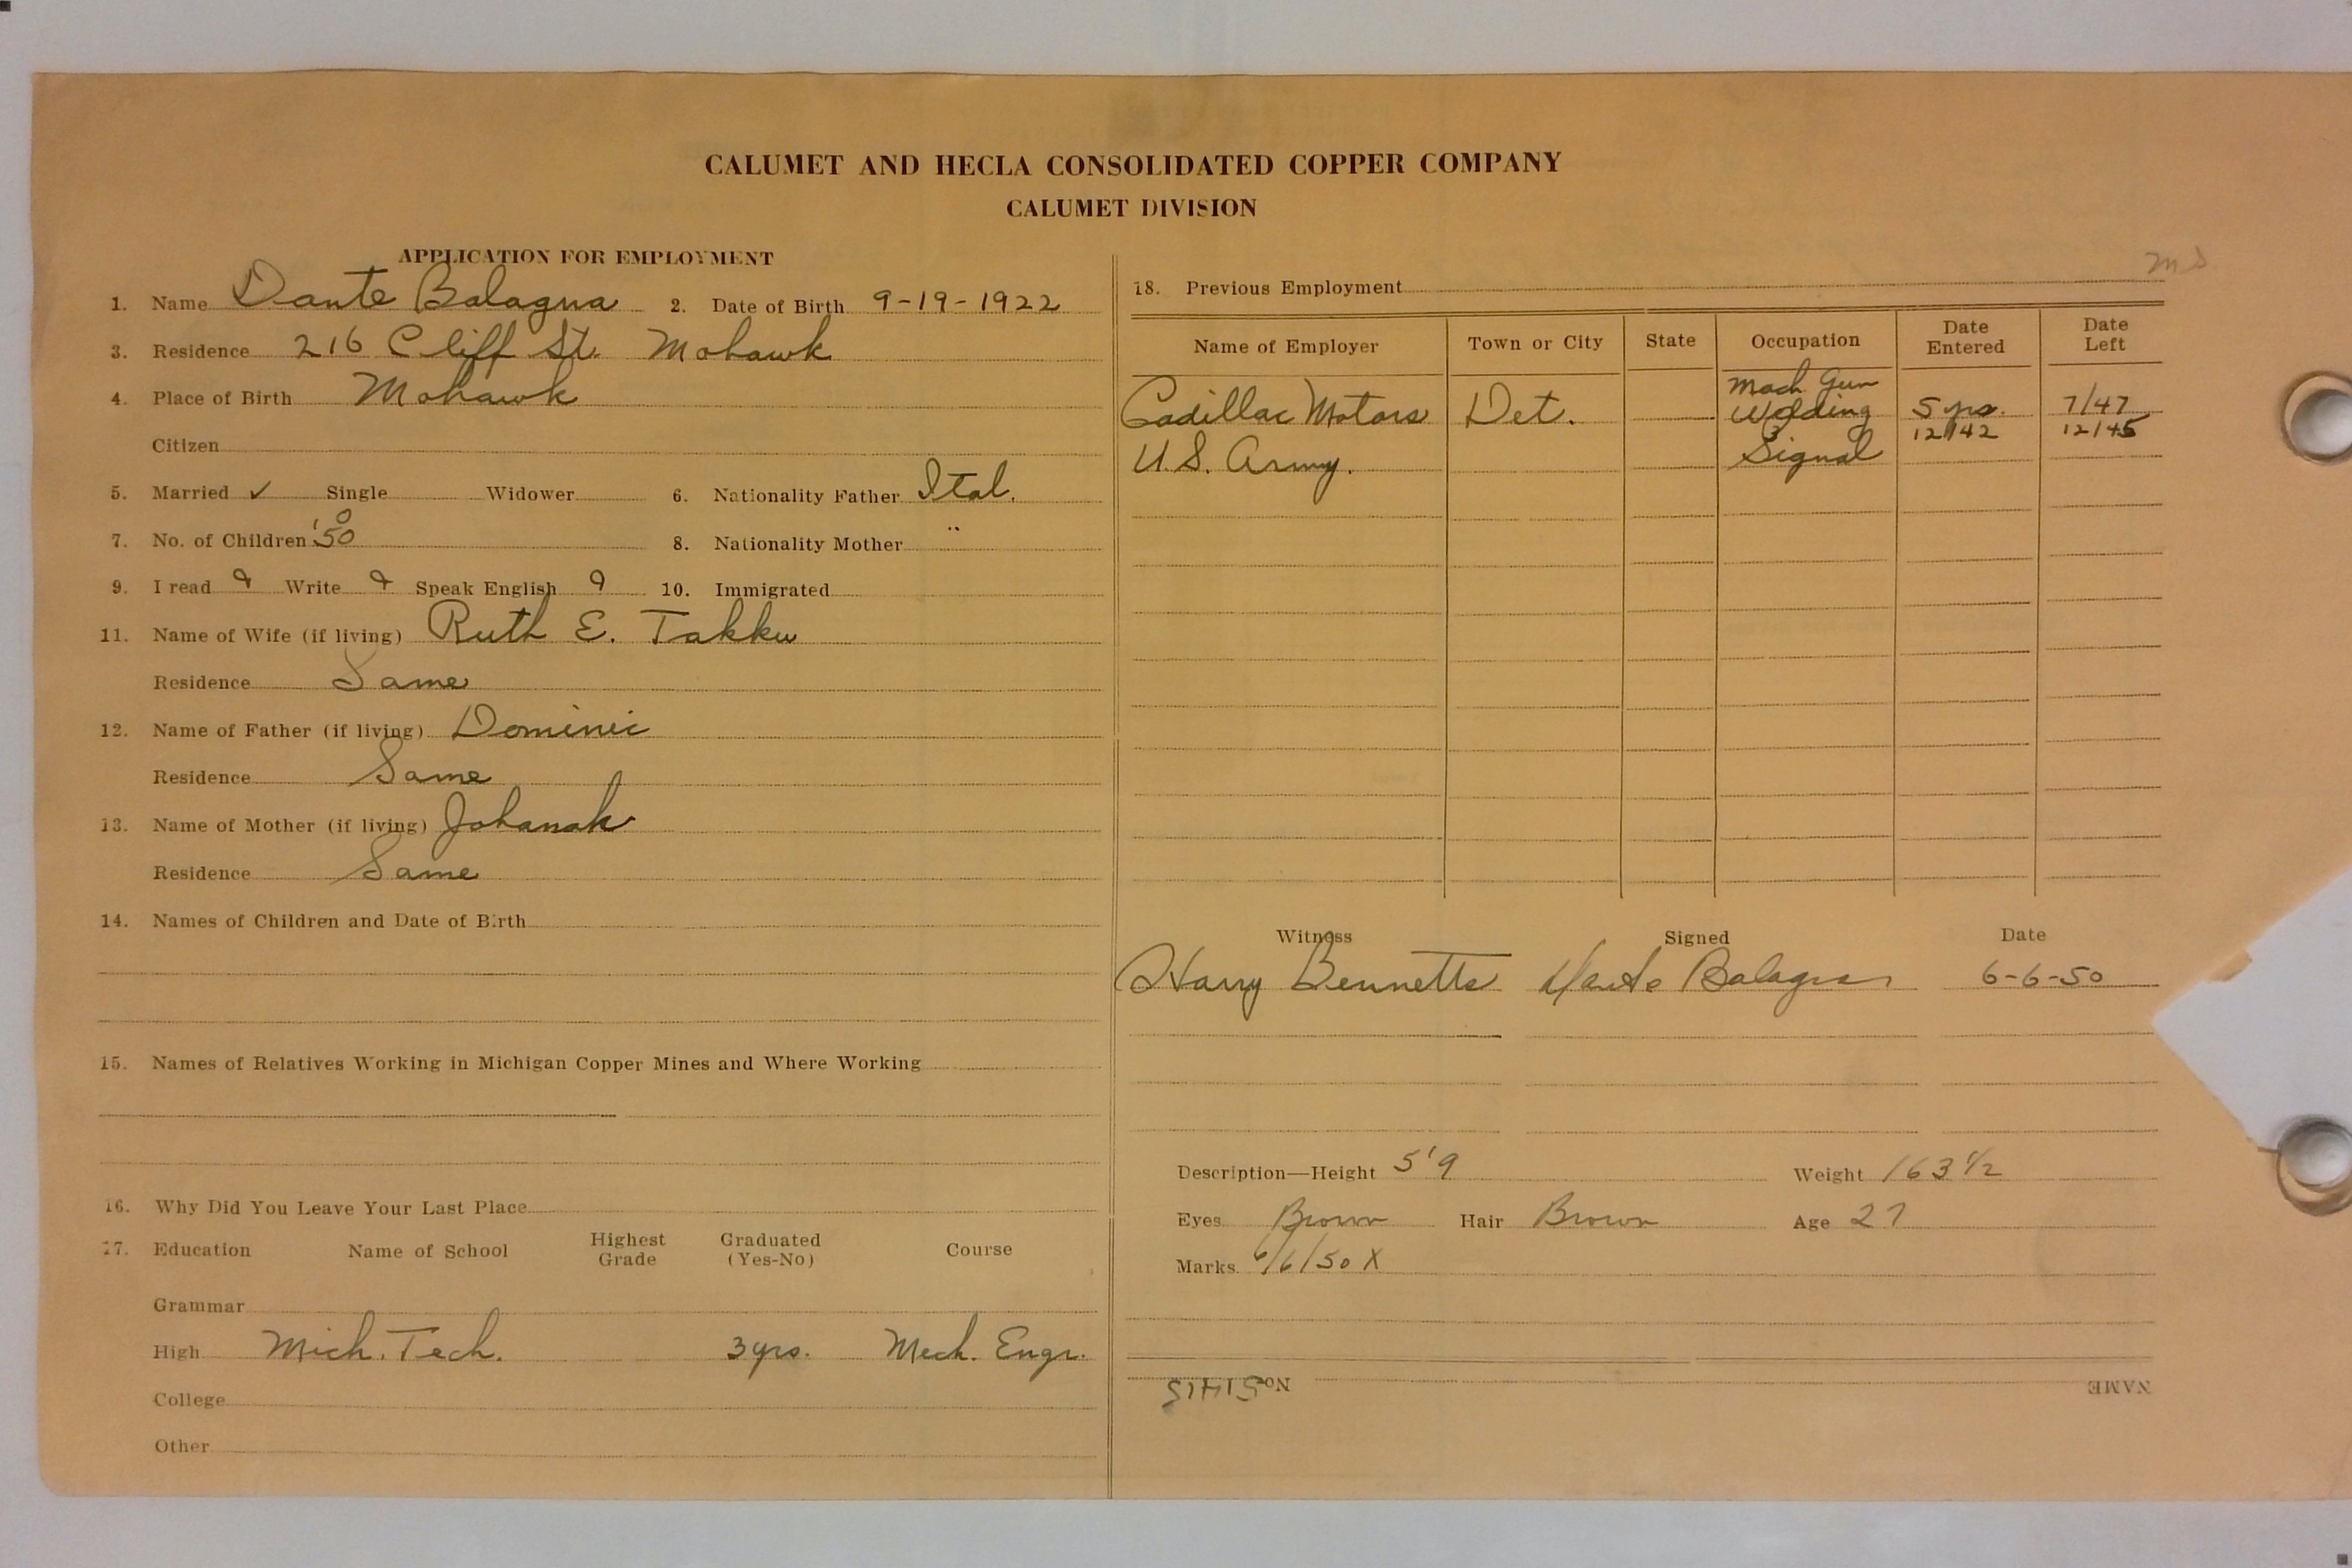 CALUMET AND HECLA CONSOLIDATED COPPER COMPANY
CALUMET DIVISION
APPLICATION FOR EMPLOYMENT
1. Name Dante Balagna 2. Date of Birth 9-19-1922
3. Residence 216 Cliff St. Mohawk
4. Place of Birth Mohawk
Citizen
5. Married ✓ Single Widower 6. Nationality Father Ital.
7. No. of Children '50 0 8. Nationality Mother "
9. I read Write Speak English 10. Immigrated
11. Name of Wife (if living) Ruth E. Takku
Residence Same
12. Name of Father (if living) Dominic
Residence Same
13. Name of Mother (if living) Johanah
Residence Same
14. Names of Children and Date of Birth
15. Names of Relatives Working in Michigan Copper Mines and Where Working
16. Why Did You Leave Your Last Place
17. Education Name of School Highest Grade Graduated (Yes-No) Course
Grammar
High Mich. Tech. 3 yrs. Mech. Engr.
College
Other
18. Previous Employment
Name of Employer Town or City State Occupation Date Entered Date Left
Cadillac Motors Det. Mach. Gun Welding 5 yrs. 7/47
U.S. Army. Signal 12/42 12/45
Witness Signed Date
Harry Bennetts Dante Balagna 6-6-50
Description—Height 5'9 Weight 163 1/2
Eyes Brown Hair Brown Age 27
Marks 6/6/50 X
No 51415 NAME